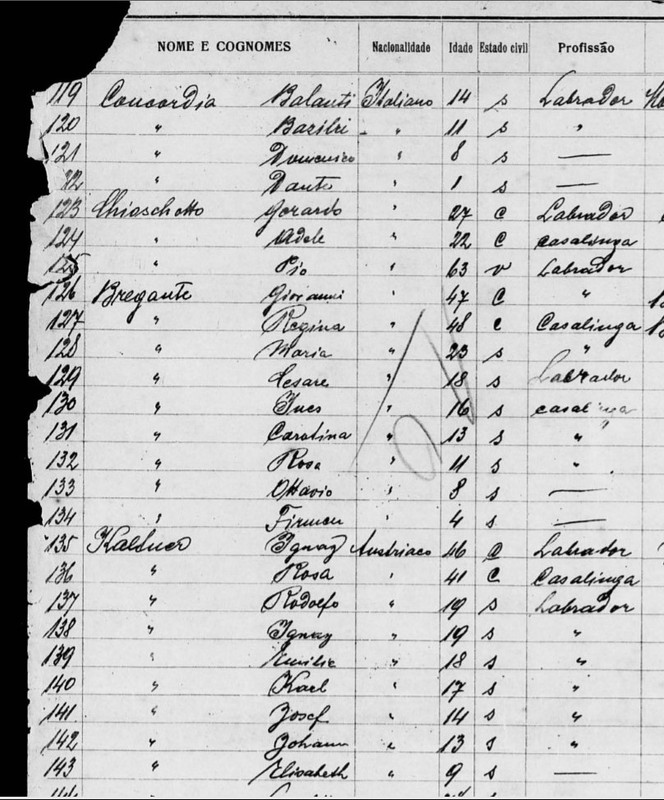 NOME E COGNOMES Nacionalidade Idade Estado civil Profissão
119 Concordia Balanti Italiano 14 s Labrador
120 " Basilri " 11 s "
121 " Domenico " 8 s —
22 " Dante " 1 s —
123 Chiaschetto Gerardo " 27 C Labrador
124 " Adele " 22 C casalinga
125 " Pio " 63 v Labrador
126 Bregante Giovanni " 47 C "
127 " Regina " 48 c Casalinga
128 " Maria " 23 s "
129 " Cesare " 18 s Labrador
130 " Ines " 16 s casalinga
131 " Carolina " 13 s "
132 " Rosa " 11 s "
133 " Ottavio 8 s —
134 " Firmen " 4 s —
135 Ignaz Austriaco 46 C Labrador
136 " Rosa " 41 C Casalinga
137 " Rodolfo " 19 s Labrador
138 " Ignaz " 19 s "
139 " Emilie " 18 s "
140 " Karl " 17 s "
141 " Josef " 14 s "
142 " Johann " 13 s "
143 " Elisabeth " 9 s —